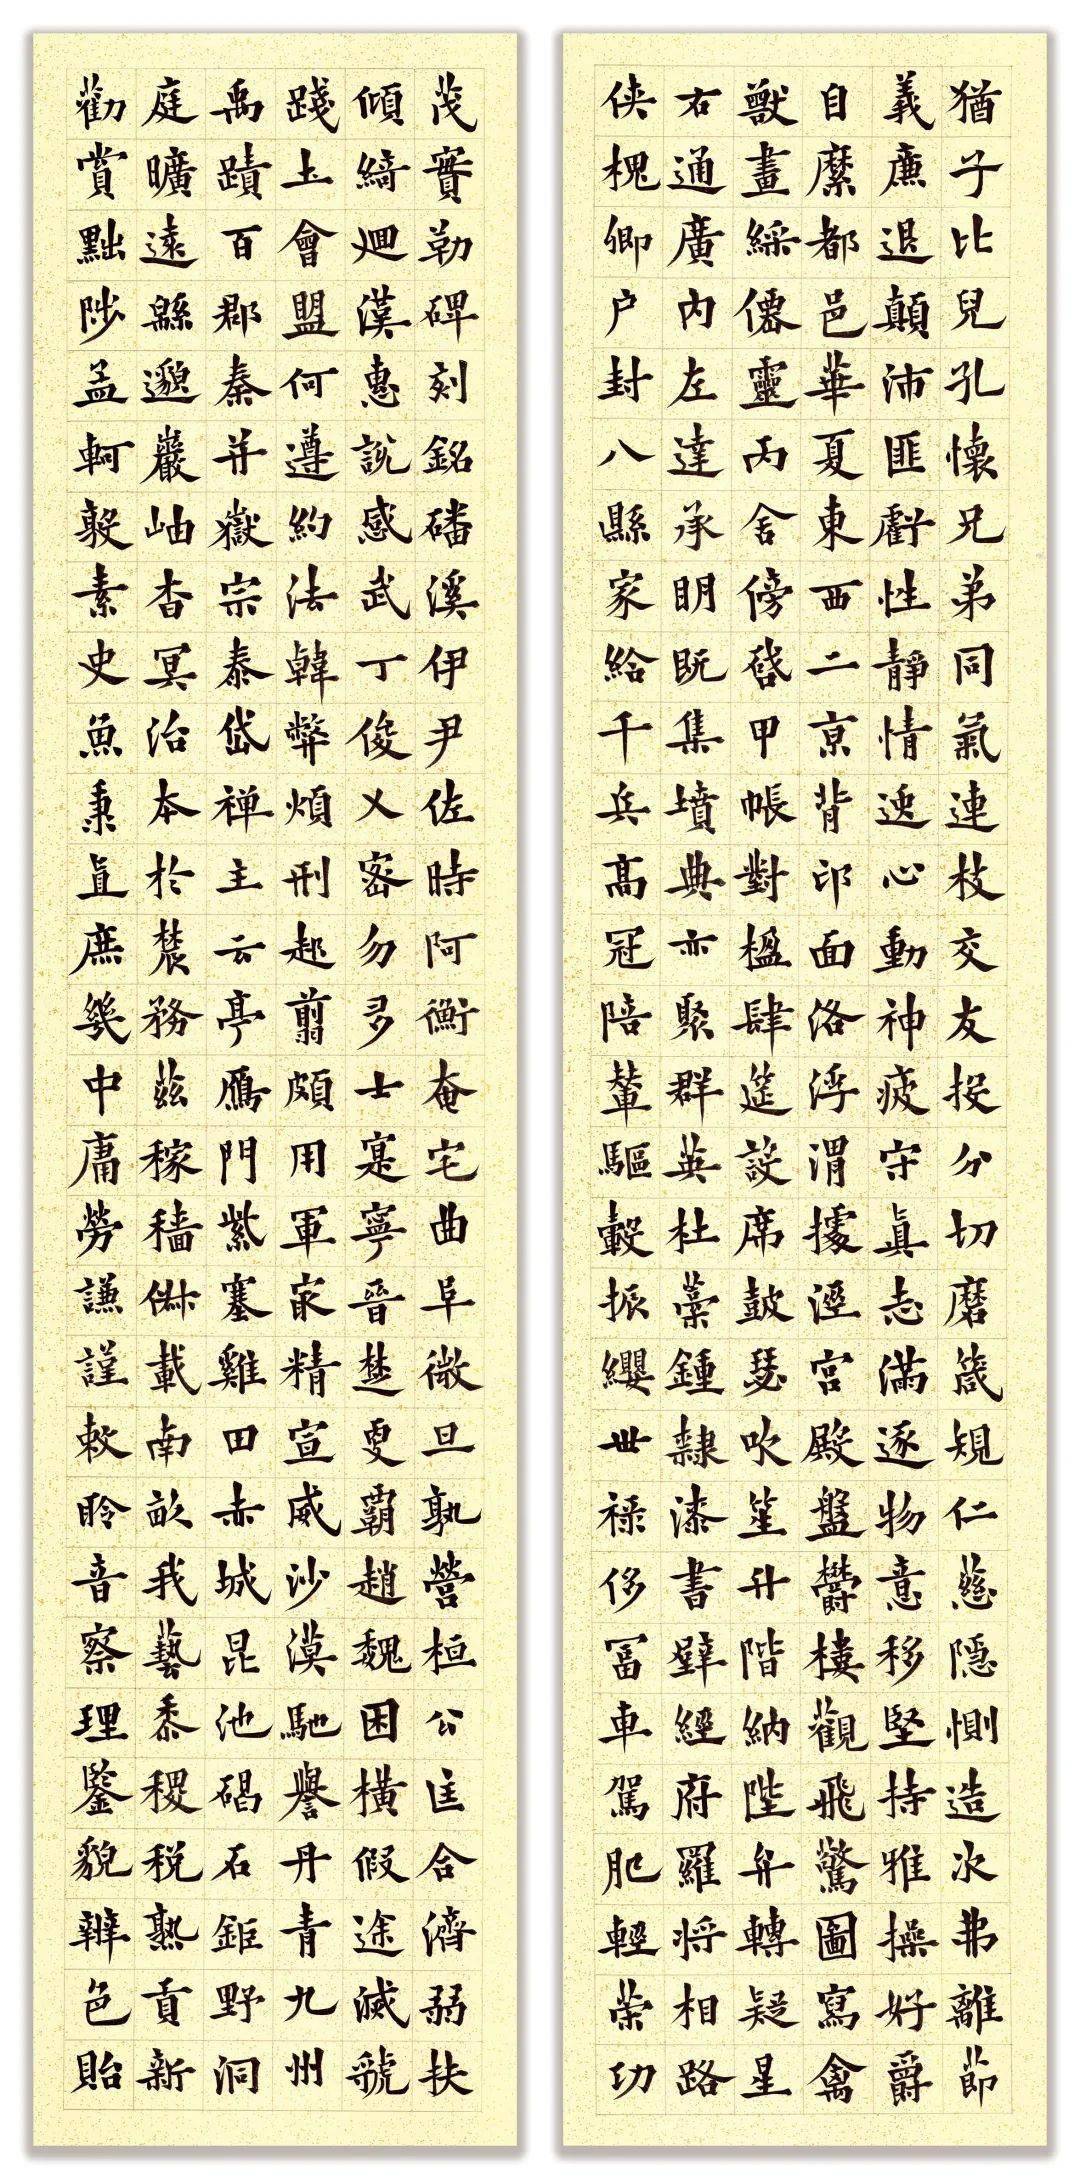 猶子比兒孔懷兄弟同氣連枝交友投分切磨箴規仁慈隱惻造次弗離節
義廉退顛沛匪虧性靜情逸心動神疲守真志滿逐物意移堅持雅操好爵
自縻都邑華夏東西二京背邙面洛浮渭據涇宮殿盤鬱樓觀飛驚圖寫禽
獸畫綵僊靈丙舍傍啓甲帳對楹肆筵設席鼓瑟吹笙升階納陛弁轉疑星
右通廣內左達承明既集墳典亦聚群英杜稾鍾隸漆書壁經府羅將相路
俠槐卿户封八縣家給千兵高冠陪輦驅轂振纓世祿侈富車駕肥輕策功
茂實勒碑刻銘磻溪伊尹佐時阿衡奄宅曲阜微旦孰營桓公匡合濟弱扶
傾綺迴漢惠說感武丁俊乂密勿多士寔寧晉楚更霸趙魏困橫假途滅虢
踐土會盟何遵約法韓弊煩刑起翦頗用軍最精宣威沙漠馳譽丹青九州
禹蹟百郡秦并嶽宗泰岱禪主云亭鴈門紫塞雞田赤城昆池碣石鉅野洞
庭曠遠緜邈巖岫杳冥治本於農務茲稼穡俶載南畝我藝黍稷稅熟貢新
勸賞黜陟孟軻敦素史魚秉直庶幾中庸勞謙謹敕聆音察理鑒貌辨色貽